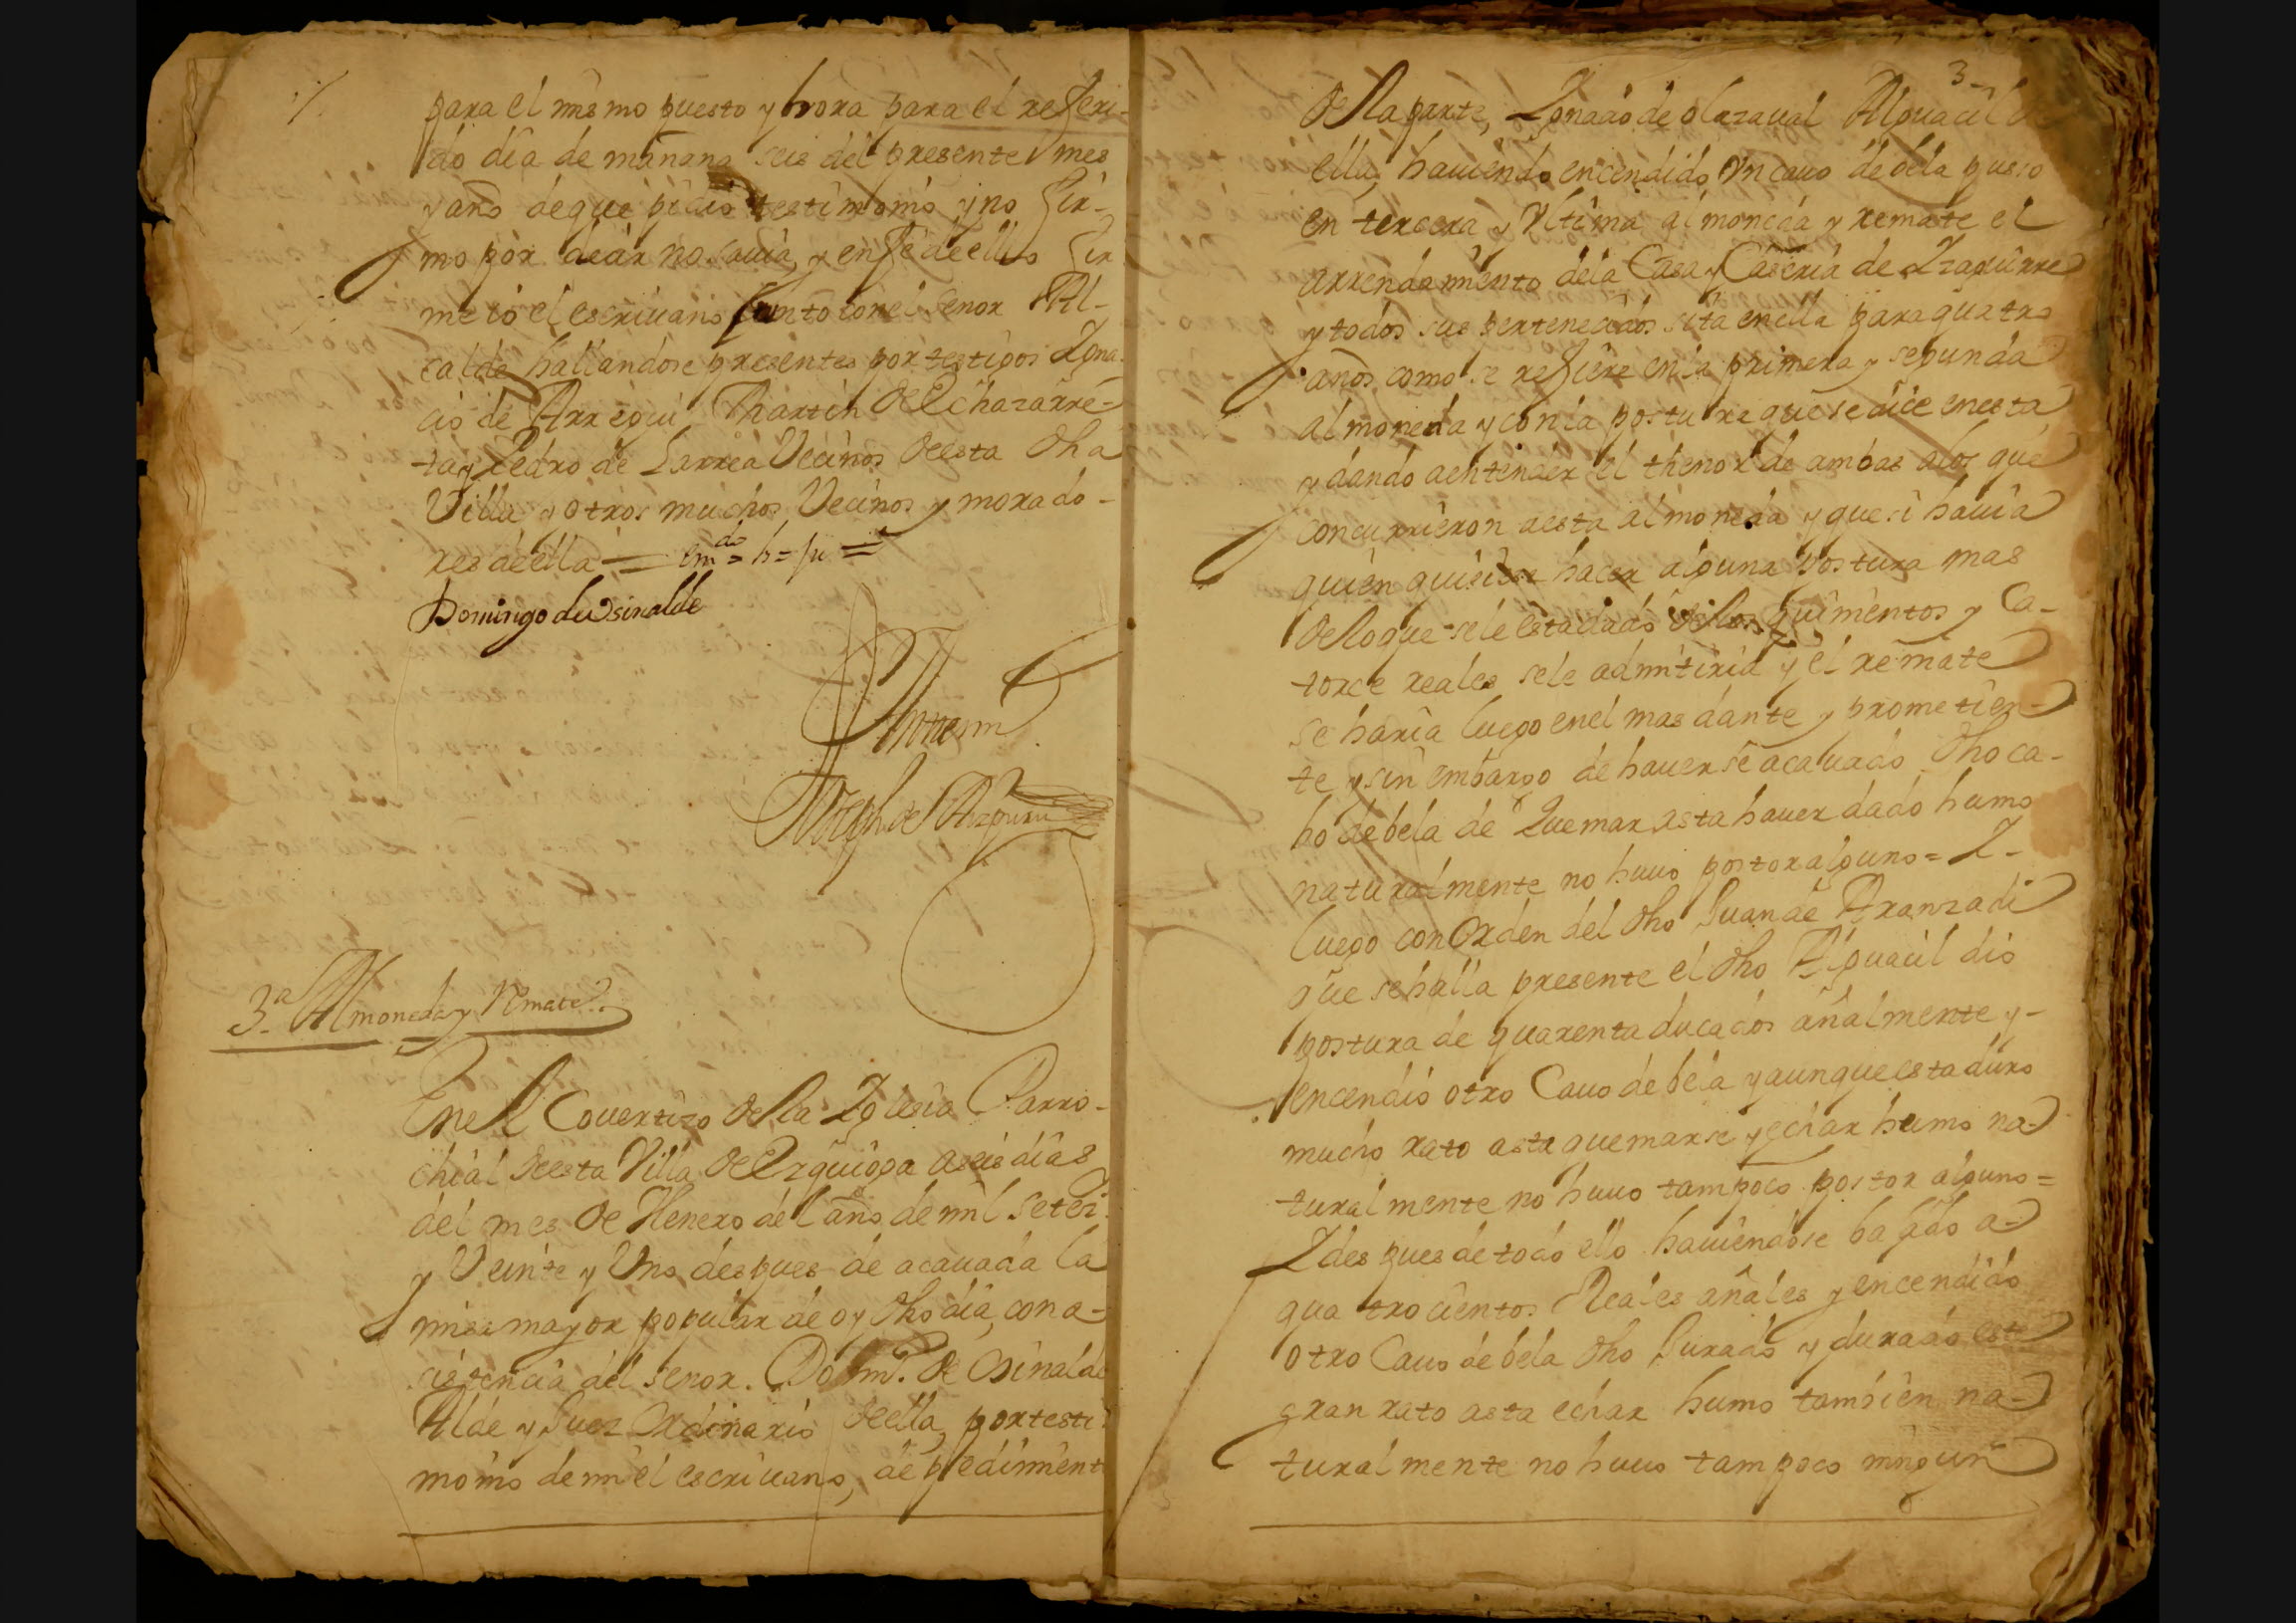 para el mismo puesto y hora para el referi-
do dia de mañana seis del presente mes
y año de que pidio testimonio y no fir-
mo por decir no savia, y en fe de ello fir
me io el escrivano junto con el senor Al-
calde hallandose presentes por testigos Igna
cio de Arregui Martin de Echazarre-
ta y Pedro de Larrea Vecinos de esta dha
Villa y otros muchos Vecinos y morado-
res de ella = em.do = h = ju =
Domingo de Osinalde
Ante mi
Joseph de Aizpuru
3.a Almoneda y Remate
En el Covertizo de la Iglesia Parro-
chial de esta Villa de Ezquioga a seis dias
del mes de Henero del año de mil setez.
y Veinte y Uno despues de acavada la
misa mayor popular de oy dho dia, con a-
sistencia del senor Dom.o de Osinalde
Alde y Juez Ordinario de ella, por testi
monio de mi el escrivano, de pedimient
3
de la parte, Ignacio de olazaval Alguacil de
ella, haviendo encendido Vn cavo de bela puso
en tercera y Vltima almoneda y remate el
arrendamiento de la Casa y Caseria de Izaguirre
y todos sus pertenecidos sita en ella para quatro
años como se refiere en la primera y segunda
almoneda y con la postura que se dice en esta
y dando a entender el thenor de ambas a los que
concurrieron a esta almoneda y que si havia
quien quisiese hacer alguna postura mas
de lo que se le esta dado de los quinientos y Ca-
torce reales se le admitiria y el remate
se haria luego en el mas dante y prometien-
te y sin embargo de haverse acavado dho ca-
bo de bela de Quemar asta haver dado humo
naturalmente no huvo postor alguno = I-
luego con Orden del dho Juan de Aranzadi
que se halla presente el dho Alguacil dio
postura de quarenta ducados añalmente y-
encendio otro Cavo de bela y aunque esta duro
mucho rato asta quemarse y echar humo na-
turalmente no huvo tampoco postor alguno =
I despues de todo ello haviendose bajado a-
quatrocientos Reales añales y encendido
otro Cavo de bela dho Jurado y durado este
gran rato asta echar humo tambien na-
turalmente no huvo tampoco ningun